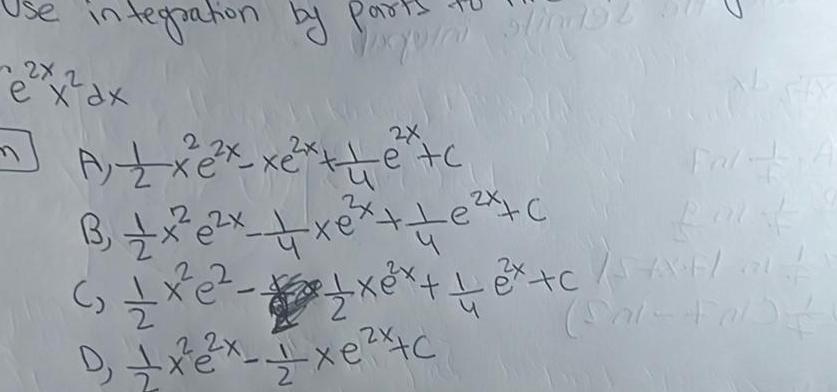 Use integration by parts to
e^{2x} x^2 dx
A, \frac{1}{2} x^2 e^{2x} - xe^{2x} + \frac{1}{4} e^{2x} + C
B, \frac{1}{2} x^2 e^{2x} - \frac{1}{4} xe^{2x} + \frac{1}{4} e^{2x} + C
C, \frac{1}{2} x^2 e^2 - \frac{1}{2} xe^{2x} + \frac{1}{4} e^{2x} + C
D, \frac{1}{2} x^2 e^{2x} - \frac{1}{2} xe^{2x} + C